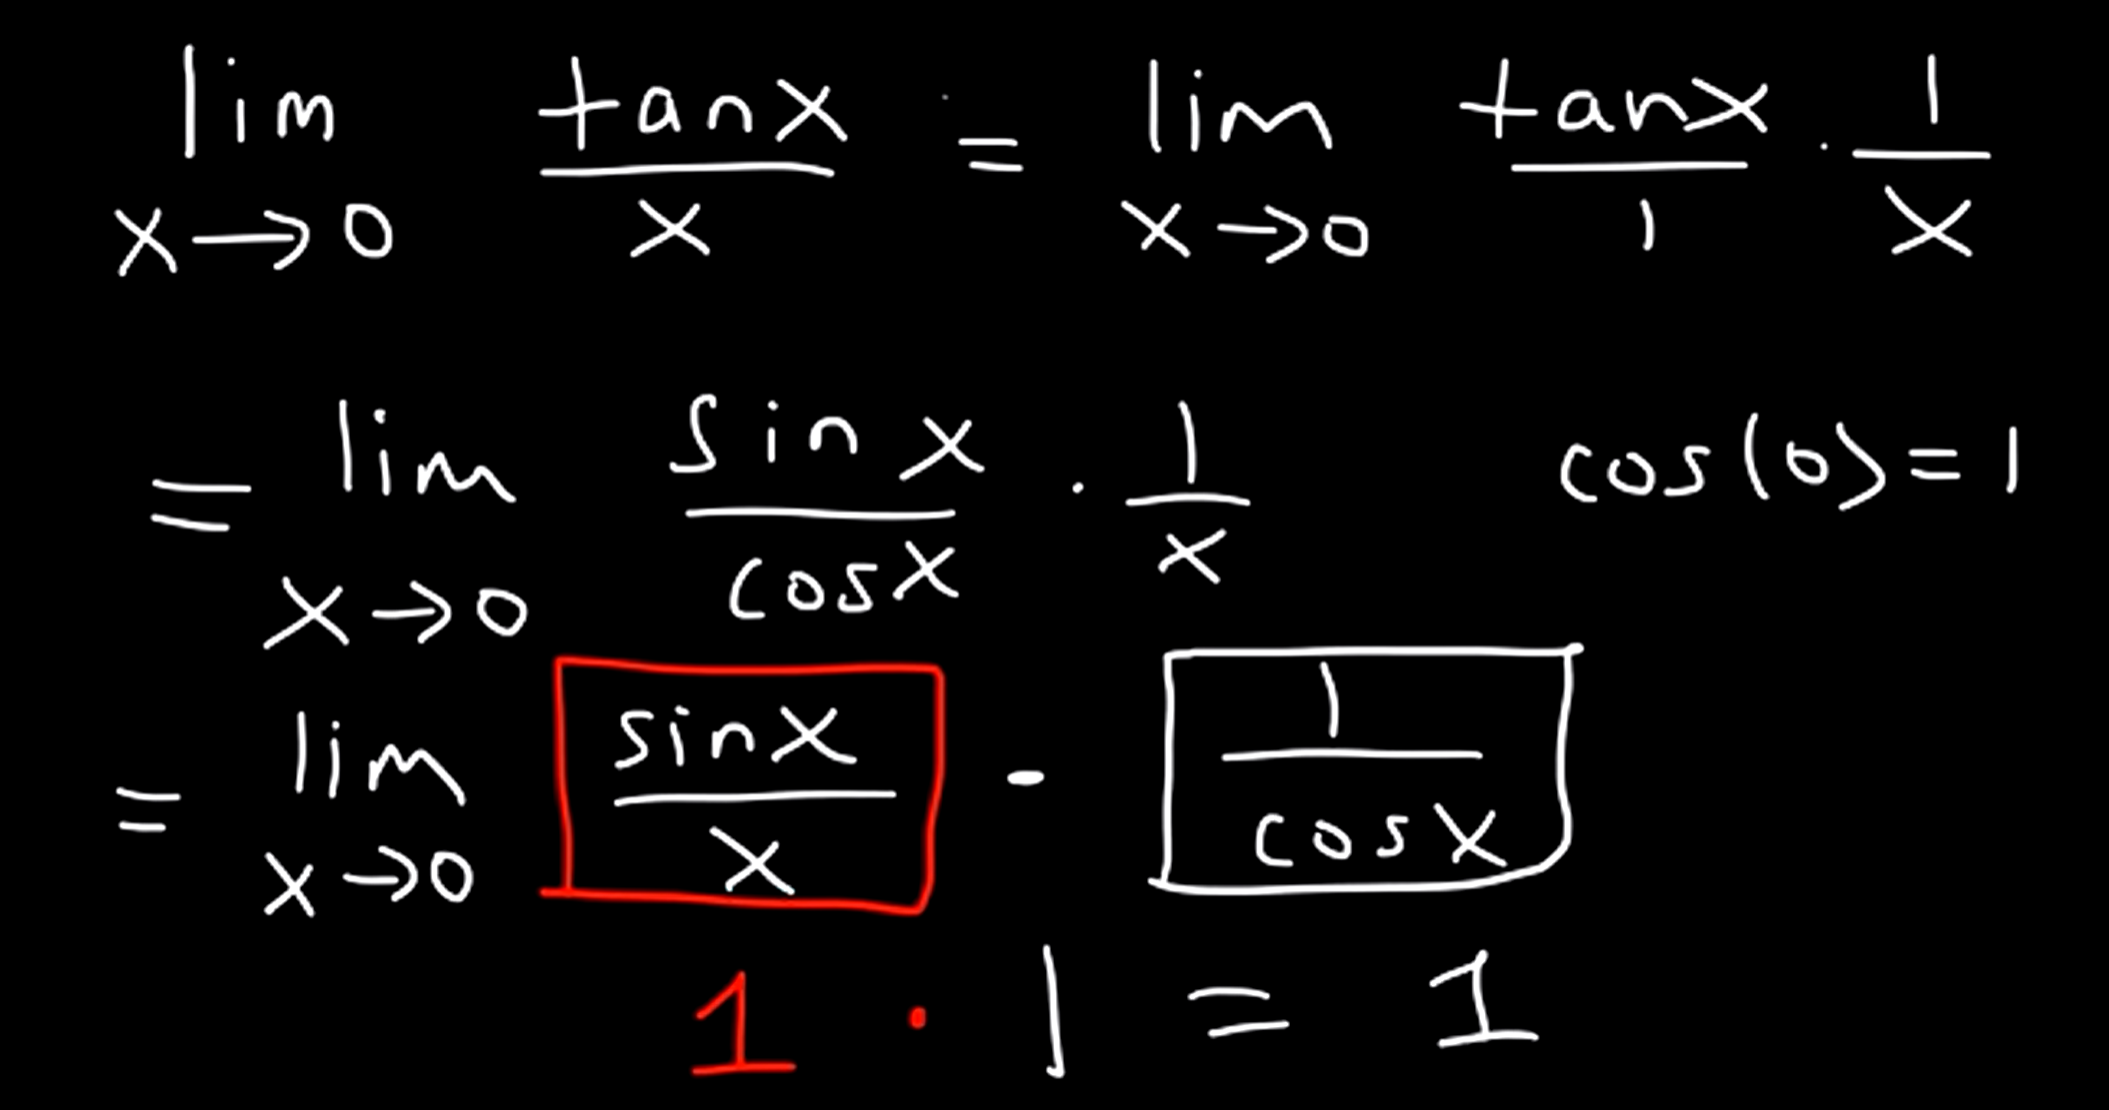 lim x→0 tanx/x = lim x→0 tanx/1 · 1/x
= lim x→0 sinx/cosx · 1/x cos(0)=1
= lim x→0 sinx/x · 1/cosx
1 · 1 = 1